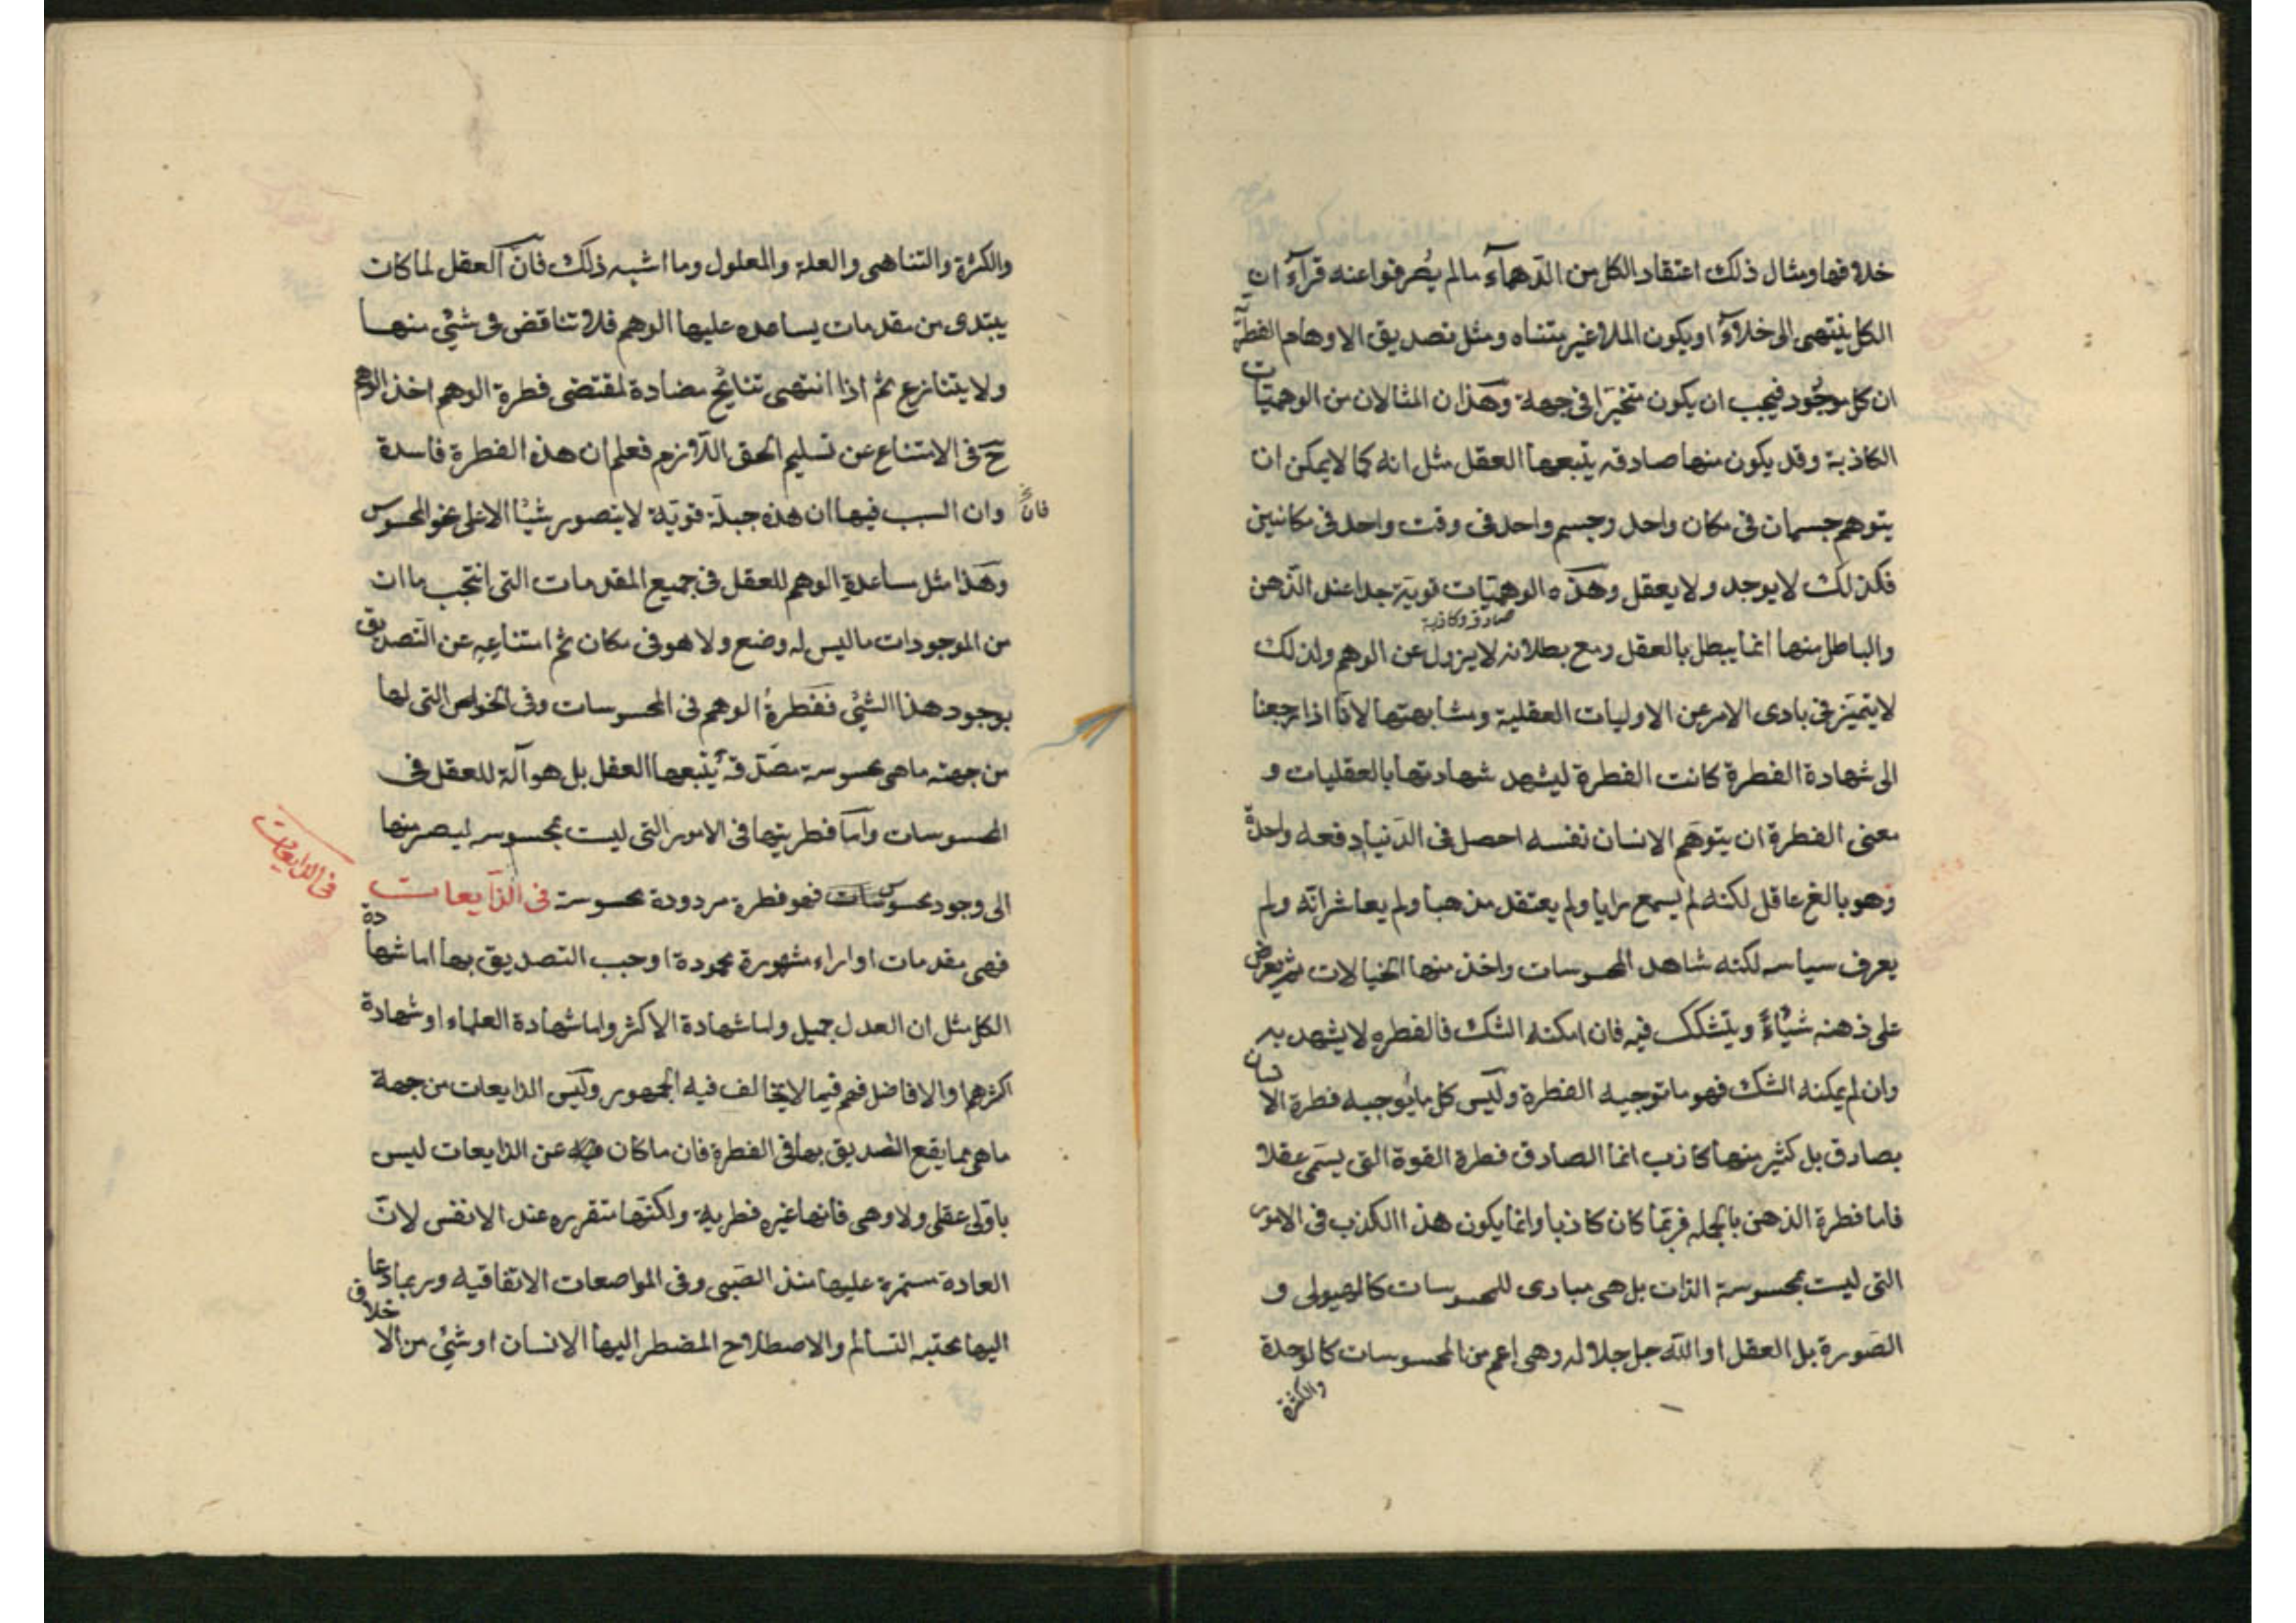 خلافها ومثال ذلك اعتقاد الكل من الدّهمآء مالم يُصرفوا عنه قرآءُ ان
الكل ينتهى الى خلاءٓ او يكون الملا غير متناه ومثل تصديق الاوهام الفطريّة
ان كل موجُود فيجب ان يكون متحيّزا فى جهة وهذان المثالان من الوهميّات
الكاذبة وقد يكون منها صادقه يتّبعها العقل مثل انه كما لا يمكن ان
يتوهم جسمان فى مكان واحد وجسم واحد فى وقت واحد فى مكانين
فكذلك لا يوجد ولا يعقل وهذه الوهميّات قويّة جدا عند الذّهن
صادقه وكاذبة
والباطل منها انما يبطل بالعقل ومع بطلانه لا يزول عن الوهم ولذلك
لا يتميّز فى بادى الامر عن الاوليات العقلية ومشابهتها لانّا اذا رجعنا
الى شهادة الفطرة كانت الفطرة ليشهد شهادتها بالعقليات و
معنى الفطرة ان يتوهّم الانسان نفسه احصل فى الدّنيا دفعه واحدةً
وهو بالغ عاقل لكنه لم يسمع رايا ولم يعتقد مذهبا ولم يعاشر امّة ولم
يعرف سياسه لكنه شاهد المحسوسات واخذ منها الخيالات ثم يعرض
على ذهنه شيْاءً ويتشكك فيه فان امكنه الشك فالفطره لا يشهد به
وان لم يمكنه الشك فهو ما توجبه الفطرة وليس كل ما يُوجبه فطرة الانسان
بصادق بل كثير منها كاذب انما الصادق فطرة القوة التى يسمّى عقلا
فاما فطرة الذهن بالجمله فربّما كان كاذبا وانما يكون هذا الكذب فى الامور
التى ليست بمحسوسة الذات بل هى مبادى للمحسوسات كالهيولى و
الصّورة بل العقل او اللّه جل جلاله وهى اعم من المحسوسات كالوحدة
والكثرة
والكثرة والتناهى والعلة والمعلول وما اشبه ذلك فانّ العقل لما كان
يبتدى من مقدمات يساعده عليها الوهم فلا تناقض فى شئ منها
ولا يتنازع ثم اذا انتهى نتائج مضادة لمقتضى فطرة الوهم اخذ الوهم
حَ فى الامتناع عن تسليم الحق اللّازم فعلم ان هذه الفطرة فاسدة
وان السبب فيها ان هذه جبلّة قويّة لا يتصور شيْا الا على نحو المحسوس
فانّ
وهذا مثل مساعدة الوهم للعقل فى جميع المقدمات التى انتجب ما ان
من الموجودات ما ليس له وضع ولا هو فى مكان ثم امتناعِهِ عن التصديق
بوجود هذا الشئ ففطرةُ الوهم فى المحسوسات وفى الخواص التى لها
من جهته ماهى محسوسة مصّدقه يتّبعها العقل بل هو آلة للعقل فى
المحسوسات وامّا فطريتها فى الامور التى ليست بمحسوسه ليصر منها
الى وجود محسوسات فهو فطرة مردودة محسوسة فى الذّايعات
فى الذايعات
فهى مقدمات او اراء مشهورة محمودة اوجب التصديق بها اما شهادة
الكل مثل ان العدل جميل واما شهادة الاكثر واما شهادة العلماء او شهادة
اكثرهم او الافاضل فهم فيما لا يخالف فيه الجمهور وليس الذايعات من جهة
ماهى مما يقع التصديق بها فى الفطرة فان ما كان عن الذايعات ليس
باوّلى عقلى ولا وهمى فانها غيره فطرية ولكنّها متقرره عند الانفس لانّ
العادة مستمرة عليها منذ الصّبى وفى المواضعات الاتفاقيه وربما دعا
اليها محبّه التسالم والاصطلاح المضطر اليها الانسان او شئ من الاخلاق